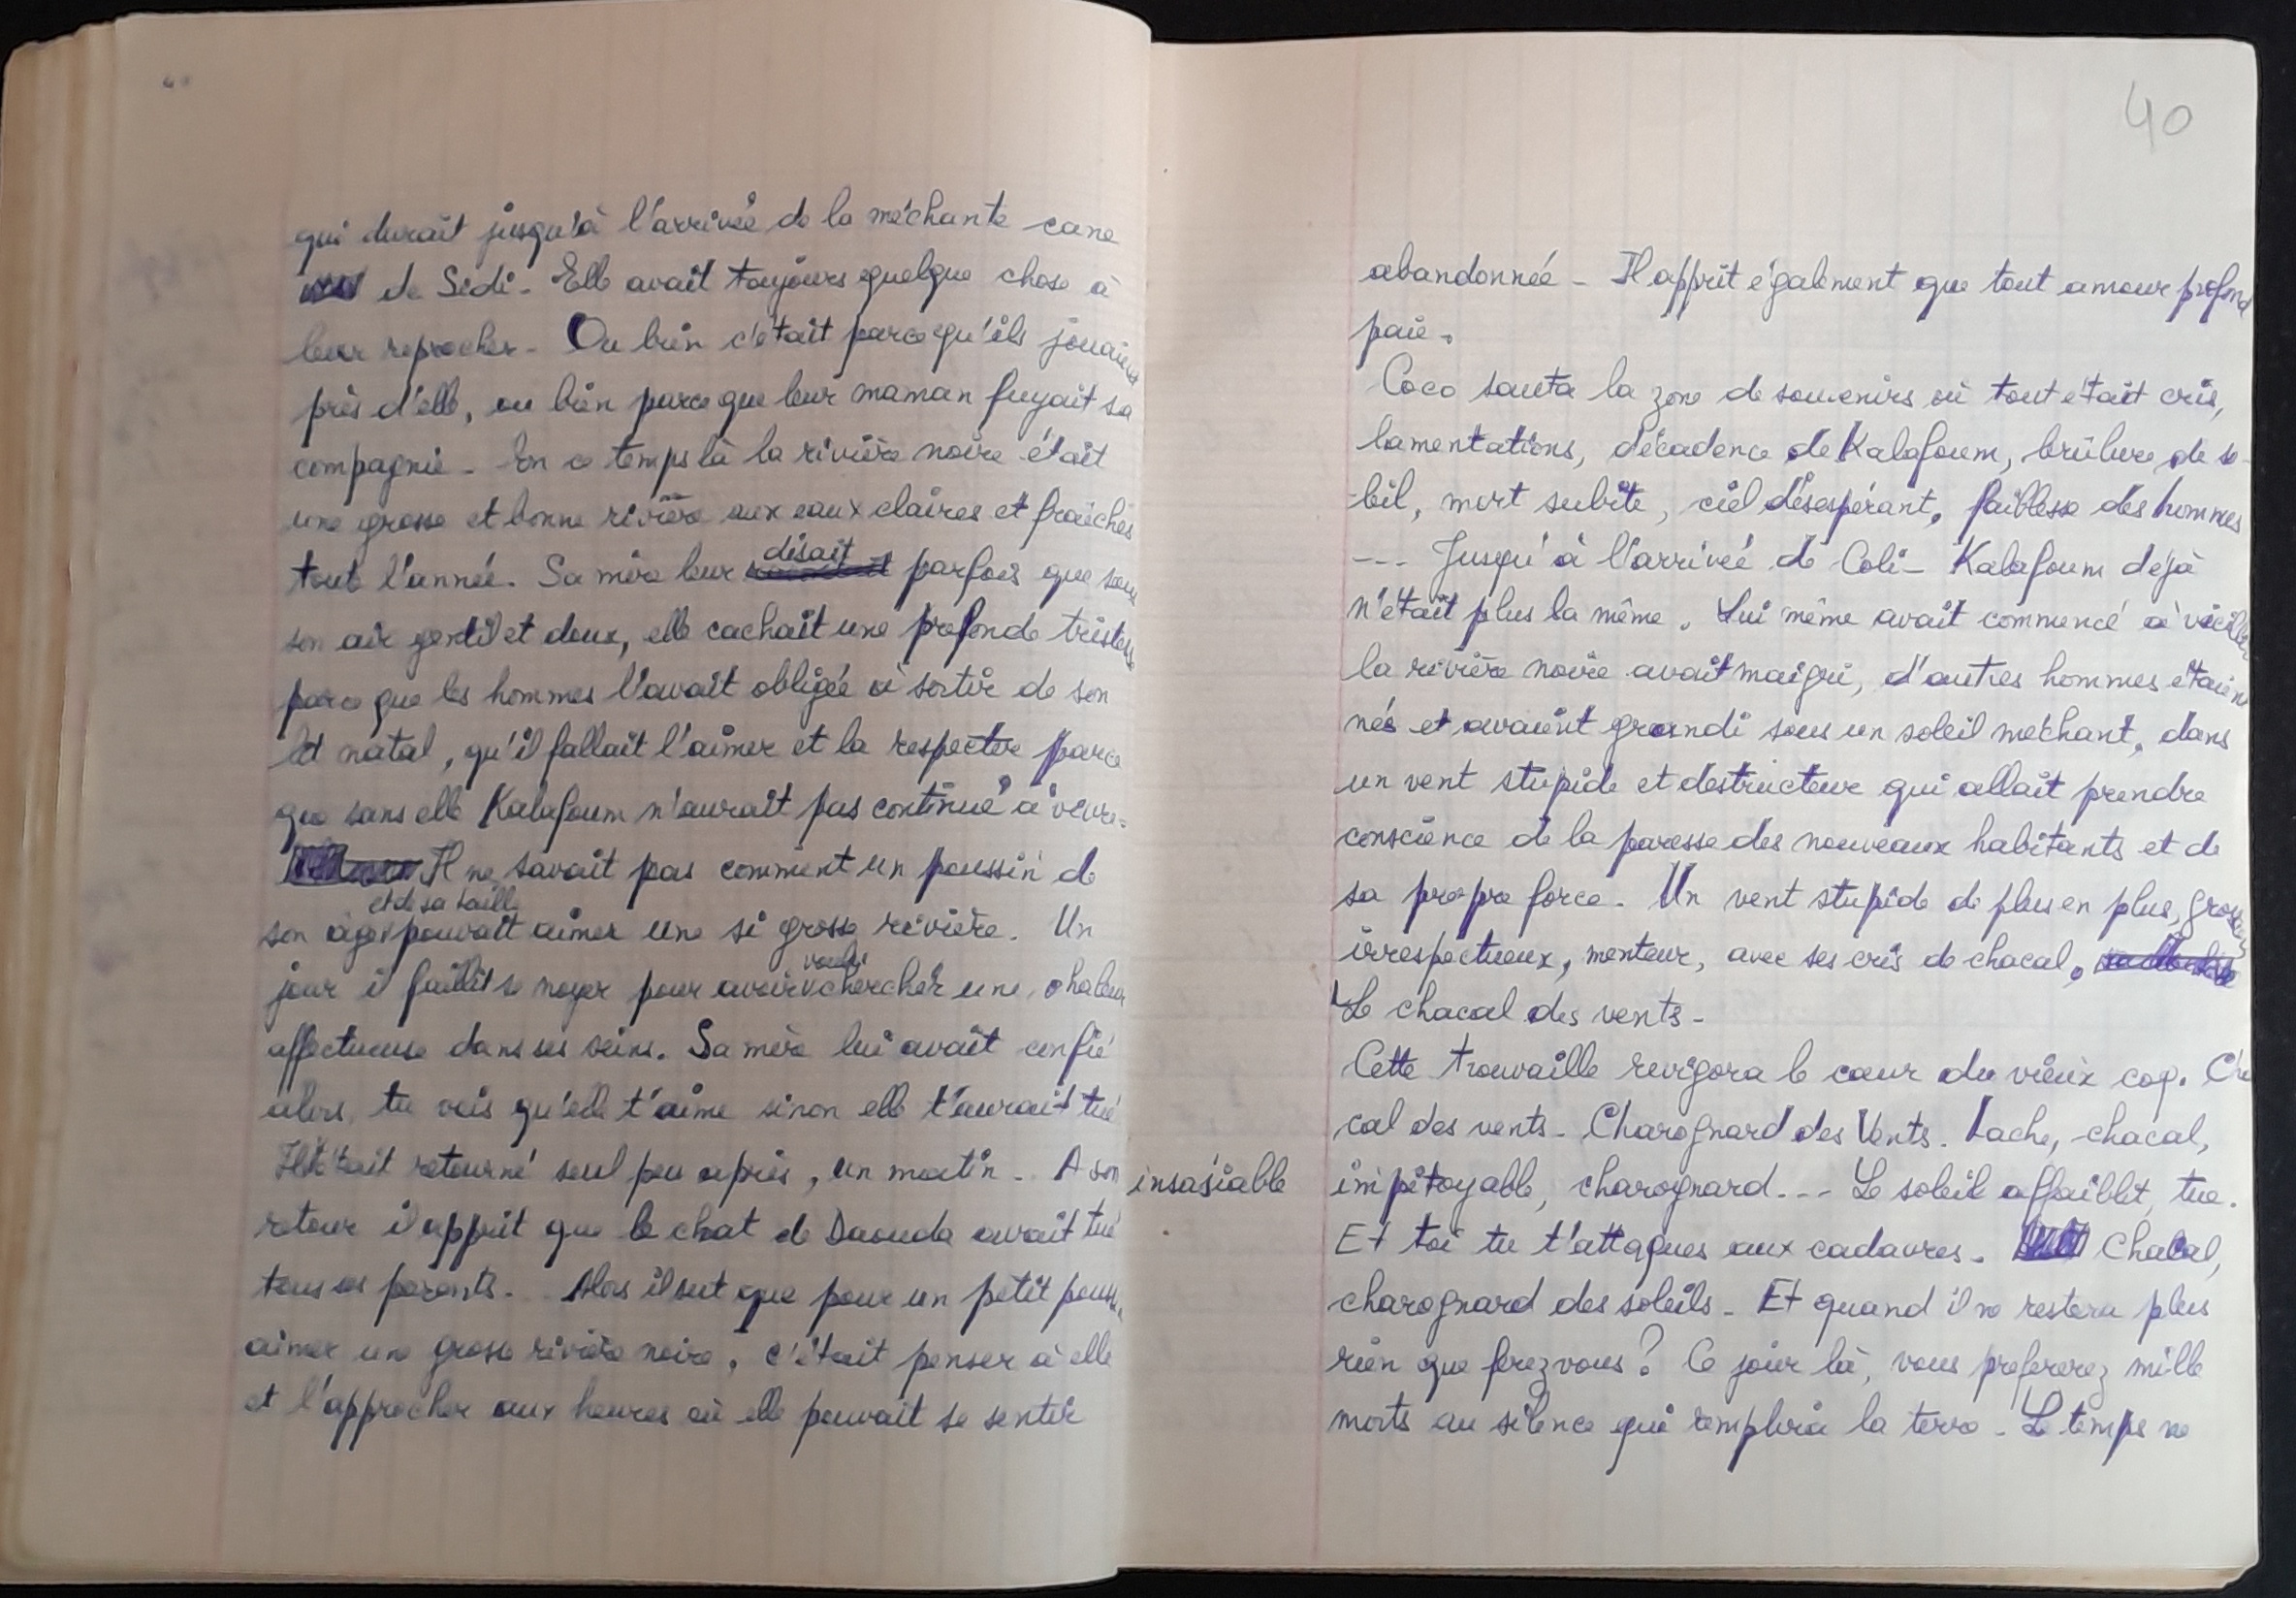 qui durait jusqu'à l'arrivée de la méchante cane
de Sidi. Elle avait toujours quelque chose à
leur reprocher. Ou bien c'était parce qu'ils jouaient
près d'elle, ou bien parce que leur maman fuyait sa
compagnie. En ce temps là la rivière noire était
une grosse et bonne rivière aux eaux claires et fraîches
tout l'année. Sa mère leur disait parfois que sous
son air gentil et doux, elle cachait une profonde tristesse
parce que les hommes l'avait obligée à sortir de son
lit natal, qu'il fallait l'aimer et la respecter parce
que sans elle Kalafoum n'aurait pas continué à vivre.
Il ne savait pas comment un poussin de
son âge et de sa taille pouvait aimer une si grosse rivière. Un
jour il faillit se noyer pour avoir voulu chercher une chaleur
affectueuse dans ses seins. Sa mère lui avait confié
alors, tu vois qu'elle t'aime sinon elle t'aurait tué
Il était retourné seul peu après, un matin. A son
retour il apprit que le chat de Daouda avait tué
tous ses parents. Alors il sut que pour un petit poussin
aimer une grosse rivière noire, c'était penser à elle
et l'approcher aux heures où elle pouvait se sentir
40
abandonnée - Il apprit également que tout amour profond
paie.
Coco sauta la zone de souvenirs où tout était cris,
lamentations, décadence de Kalafoum, brûlure de so-
-leil, mort subite, ciel désespérant, faiblesse des hommes
--- Jusqu'à l'arrivée de Coli - Kalafoum déjà
n'était plus la même. Lui même avait commencé à vieillir
la rivière noire avait maigri, d'autres hommes étaient
nés et avaient grandi sous un soleil méchant, dans
un vent stupide et destructeur qui allait prendre
conscience de la paresse des nouveaux habitants et de
sa propre force. Un vent stupide de plus en plus, grossier
irrespectueux, menteur, avec ses cris de chacal.
Le chacal des vents -
Cette trouvaille revigora le cœur du vieux coq. Cha
cal des vents - Charognard des Vents. Lache, chacal,
insasiable impitoyable, charognard... Le soleil affaiblit, tue.
Et toi tu t'attaques aux cadavres. Chacal,
charognard des soleils - Et quand il ne restera plus
rien que ferez vous? Ce jour là, vous prefererez mille
morts au silence qui remplira la terre - Le temps ne